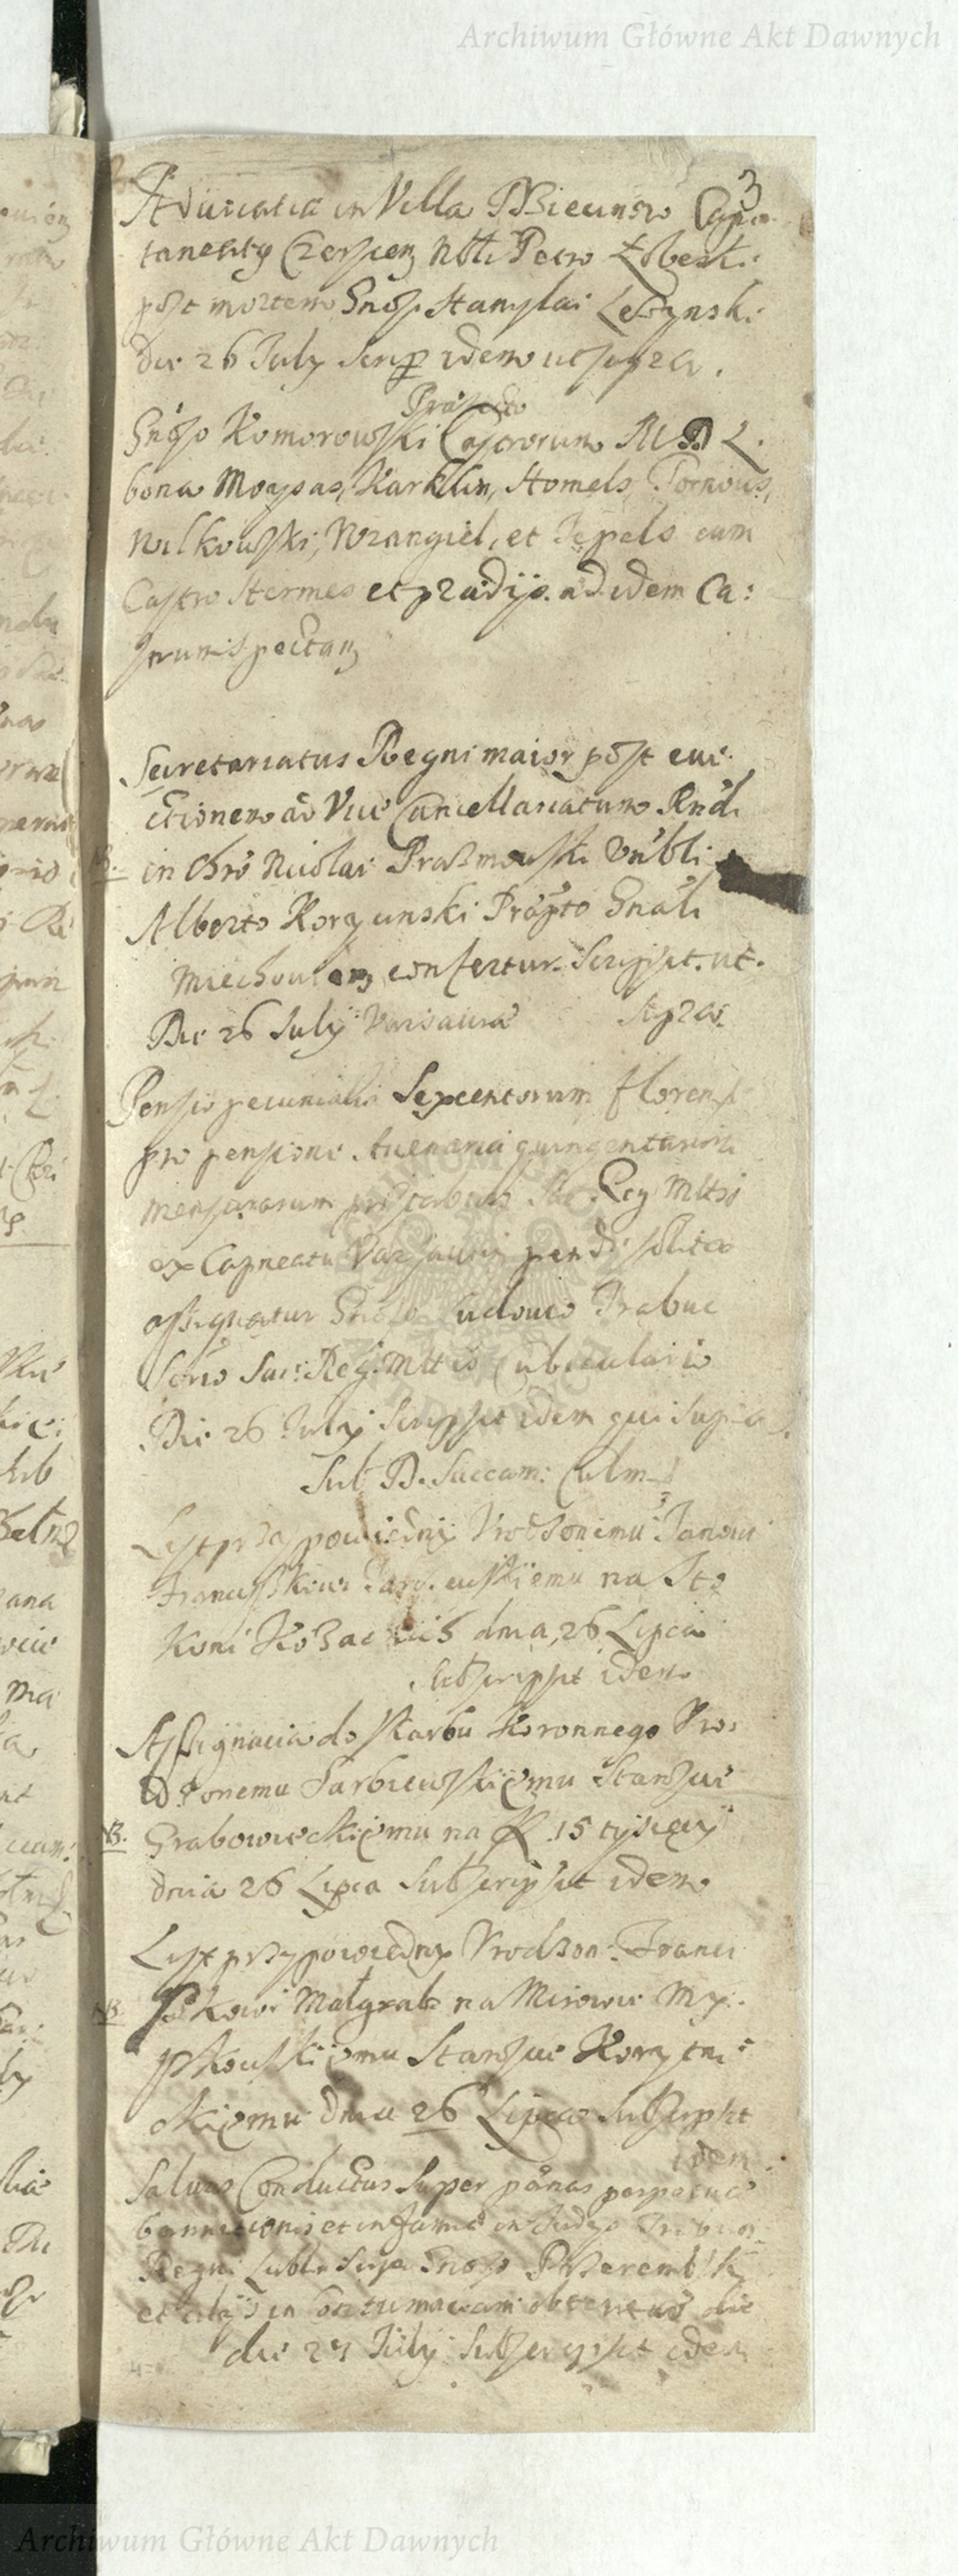 Archiwum Główne Akt Dawnych
3
Aduocatia in Villa Capi
taneatus Czerscen Nbli Petro
post mortem Gnosi Stanislai Leszynski
Die 26 July Scrip idem ut supra.
Præfecto
Gnoso Komorowski Castrorum M D L.
bona Moysas, Karklin, Homels,
Wilkowski, Wrangiel, et Tepels cum
Castro Hermes et prædijs ad idem Ca:
strum spectan
Secretariatus Regni maior post eue:
ctionem ad Vice Cancellariatum Rndi
in Chro Nicolai Prazmowski Vnbli
Alberto Korycinski Præpto Gnali
Miechouien confertur. Scripsit. ut.
Die 26 July Varsauiæ supra.
Pensio pecuniaria Sexcentorum floren
pro pensione Auenaria quingentarum
mensurarum Sac Reg Mttis
ex Capneatu Varsauien pendi solita
assignatur Gnoso Ludouico Trabuc
Sac: Reg: Mttis Cubiculario
Die 26 July Scripsit idem qui supra
Sub D. Succam: Culm
List przypowiedny Vrodzonemu Janowi
Franciszkowi na Sto
Koni Kozackich dnia 26 Lipca
Subscripsit idem
Assignacia do Skarbu Koronnego Vro:
dzonemu Sarbiewskiemu Staroscie
NB. Grabowieckiemu na fl. 15 tysiecy
dnia 26 Lipca Subscripsit idem
List przypowiedny Vrodzon: Franci
NB. szkowi Małgrab: na Mirowie My:
szkowskiemu Staroscie Korytni:
ckiemu dnia 26 Lipca Subscripsit
idem
Saluus Conductus super pœnas perpetuæ
bannitionis et infamiæ in Judijs
Regni Lubl
et alijs in Contumaciam obtentas die
die 27 July Subscripsit idem
Archiwum Główne Akt Dawnych